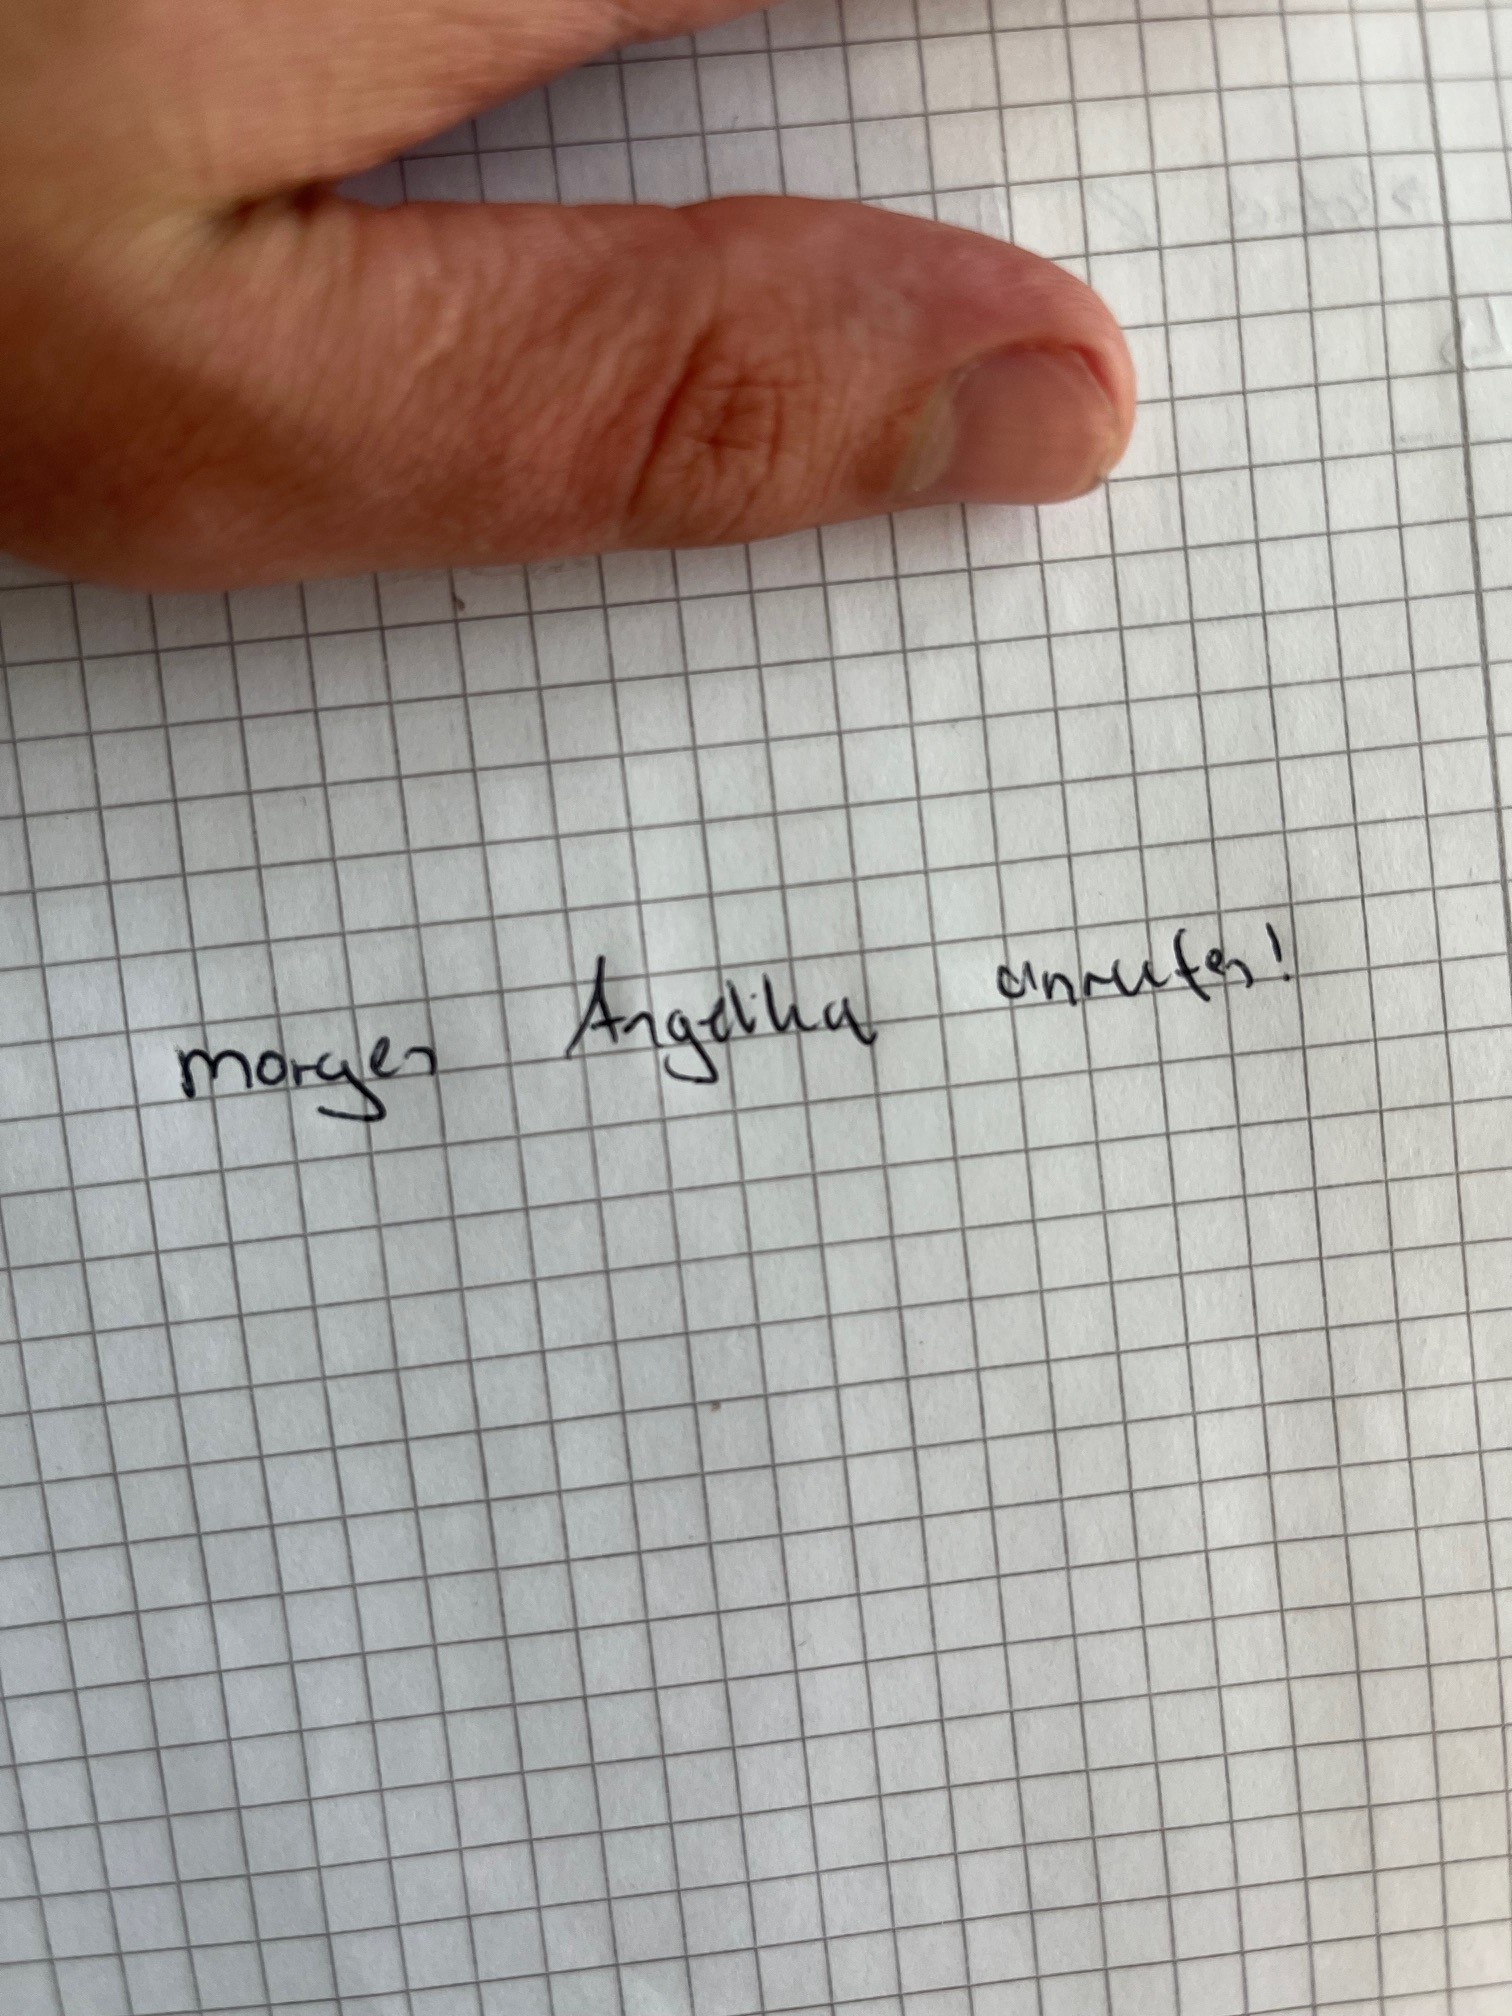 morgen Angelika anrufen!